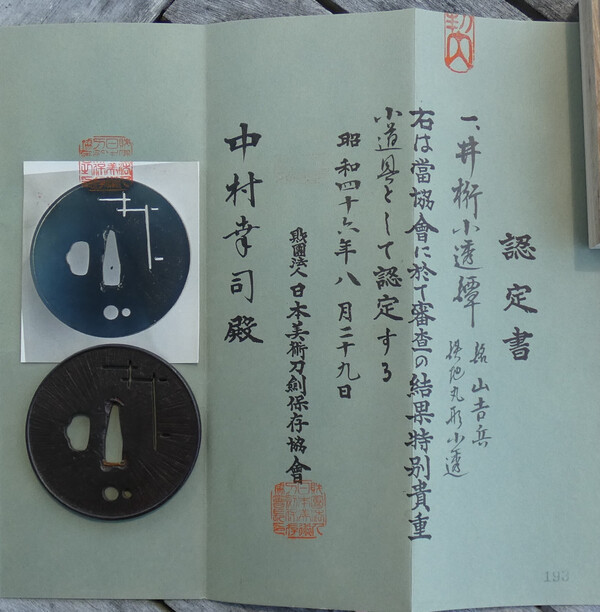 認定書
一、井桁小透鐔 銘 山吉兵
鉄地丸形小透
右は當協會に於て審査の結果特別貴重
小道具として認定する
昭和四十六年八月二十九日
財團法人日本美術刀劍保存協會
中村幸司殿
193